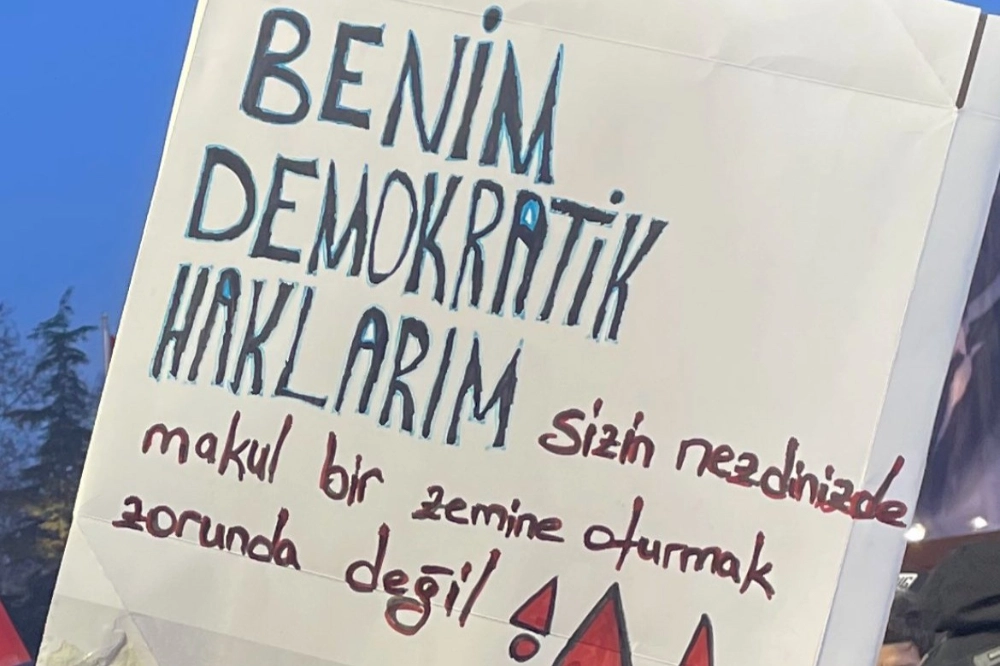 BENİM
DEMOKRATİK
HAKLARIM sizin nezdinizde
makul bir zemine oturmak
zorunda değil !!!